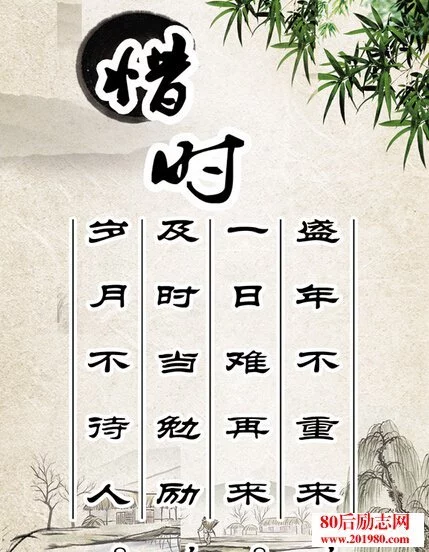 惜时
盛年不重来
一日难再来
及时当勉励
岁月不待人
80后励志网
www.201980.com